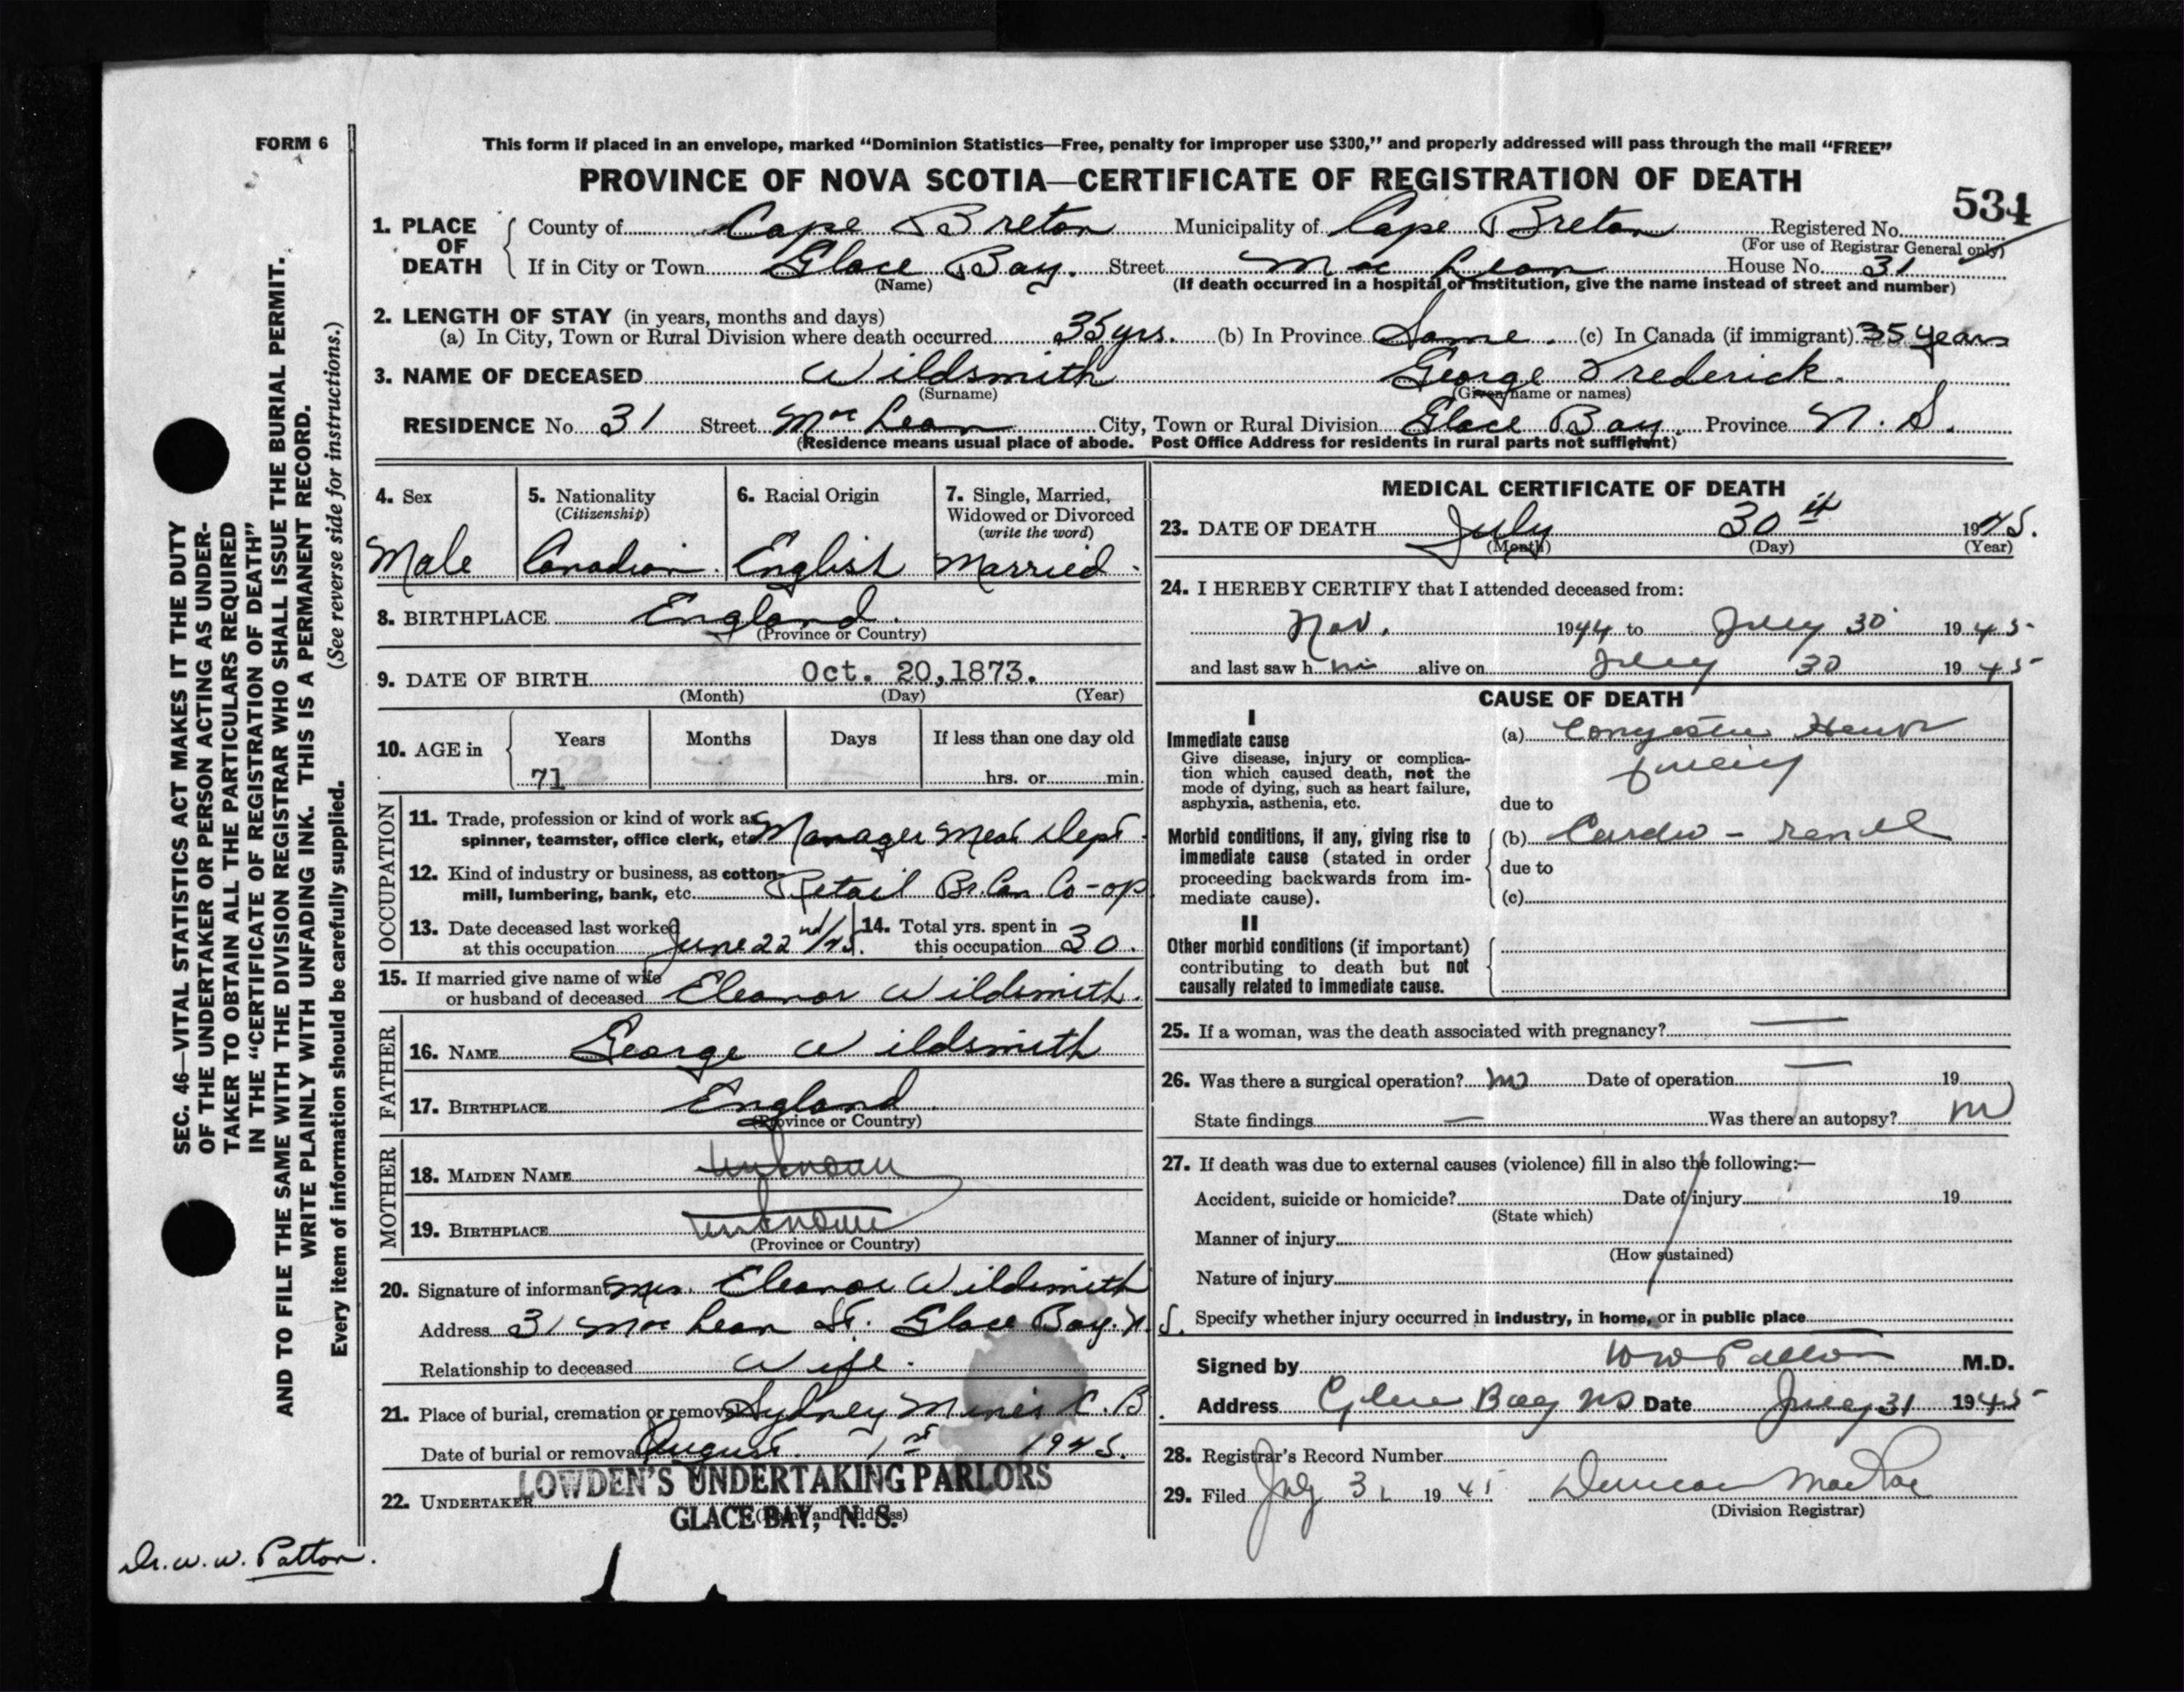 FORM 6
This form if placed in an envelope, marked "Dominion Statistics—Free, penalty for improper use $300," and properly addressed will pass through the mail "FREE"
PROVINCE OF NOVA SCOTIA—CERTIFICATE OF REGISTRATION OF DEATH
534
1. PLACE OF DEATH
County of Cape Breton Municipality of Cape Breton Registered No.
(For use of Registrar General only)
If in City or Town Glace Bay. Street Mac Lean House No. 31
(Name) (If death occurred in a hospital or institution, give the name instead of street and number)
2. LENGTH OF STAY (in years, months and days)
(a) In City, Town or Rural Division where death occurred 35 yrs. (b) In Province Same. (c) In Canada (if immigrant) 35 years
3. NAME OF DECEASED Wildsmith George Frederick.
(Surname) (Given name or names)
RESIDENCE No. 31 Street Mac Lean City, Town or Rural Division Glace Bay. Province N. S.
(Residence means usual place of abode. Post Office Address for residents in rural parts not sufficient)
4. Sex
Male
5. Nationality
(Citizenship)
Canadian.
6. Racial Origin
English
7. Single, Married,
Widowed or Divorced
(write the word)
Married.
8. BIRTHPLACE England.
(Province or Country)
9. DATE OF BIRTH Oct. 20, 1873.
(Month) (Day) (Year)
10. AGE in Years Months Days If less than one day old
71 hrs. or min.
OCCUPATION
11. Trade, profession or kind of work as
spinner, teamster, office clerk, etc. Manager Meat Dept.
12. Kind of industry or business, as cotton-
mill, lumbering, bank, etc. Retail Br. Can Co-op
13. Date deceased last worked
at this occupation June 22nd/45.
14. Total yrs. spent in
this occupation 30.
15. If married give name of wife
or husband of deceased Eleanor Wildsmith.
FATHER
16. NAME George Wildsmith
17. BIRTHPLACE England.
(Province or Country)
MOTHER
18. MAIDEN NAME unknown
19. BIRTHPLACE unknown
(Province or Country)
20. Signature of informant Mrs. Eleanor Wildsmith
Address 31 Mac Lean St. Glace Bay. N. S.
Relationship to deceased Wife.
21. Place of burial, cremation or removal Sydney Mines C. B.
Date of burial or removal August. 1st 1945.
22. UNDERTAKER LOWDEN'S UNDERTAKING PARLORS
GLACE BAY, N. S.
(Name and address)
MEDICAL CERTIFICATE OF DEATH
23. DATE OF DEATH July 30th 1945.
(Month) (Day) (Year)
24. I HEREBY CERTIFY that I attended deceased from:
Nov. 1944 to July 30 1945
and last saw him alive on July 30 1945
CAUSE OF DEATH
I
Immediate cause
Give disease, injury or complica-
tion which caused death, not the
mode of dying, such as heart failure,
asphyxia, asthenia, etc.
(a) Congestive Heart
due to
Morbid conditions, if any, giving rise to
immediate cause (stated in order
proceeding backwards from im-
mediate cause).
(b) Cardio-renal
due to
(c)
II
Other morbid conditions (if important)
contributing to death but not
causally related to immediate cause.
25. If a woman, was the death associated with pregnancy? —
26. Was there a surgical operation? no Date of operation — 19
State findings — Was there an autopsy? no
27. If death was due to external causes (violence) fill in also the following:—
Accident, suicide or homicide? Date of injury 19
(State which)
Manner of injury
(How sustained)
Nature of injury
Specify whether injury occurred in industry, in home, or in public place
Signed by W W Patton M.D.
Address Glace Bay NS Date July 31 1945
28. Registrar's Record Number
29. Filed July 31 1945 Duncan MacRae
(Division Registrar)
SEC. 46—VITAL STATISTICS ACT MAKES IT THE DUTY
OF THE UNDERTAKER OR PERSON ACTING AS UNDER-
TAKER TO OBTAIN ALL THE PARTICULARS REQUIRED
IN THE "CERTIFICATE OF REGISTRATION OF DEATH"
AND TO FILE THE SAME WITH THE DIVISION REGISTRAR WHO SHALL ISSUE THE BURIAL PERMIT.
WRITE PLAINLY WITH UNFADING INK. THIS IS A PERMANENT RECORD.
Every item of information should be carefully supplied. (See reverse side for instructions.)
Dr. W. W. Patton.